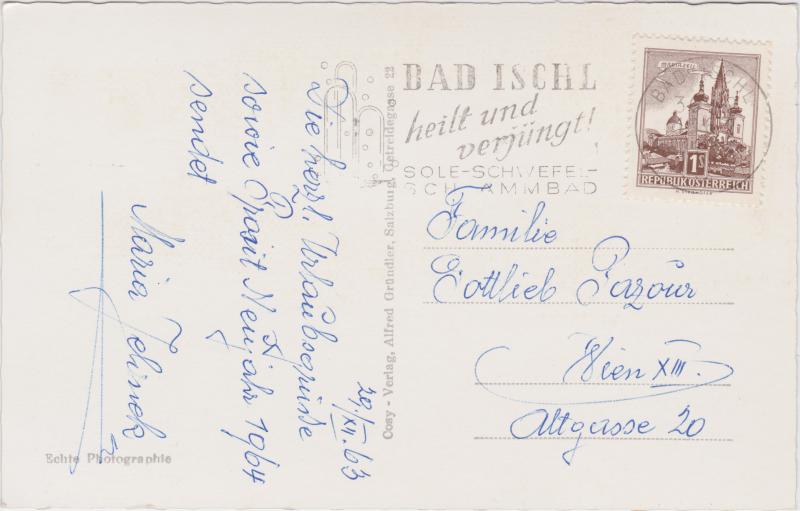 29./XII.63
Die herzl. Urlaubsgrüsse
sowie Prosit Neujahr 1964
sendet
Maria Jelinek
Echte Photographie
Cosy - Verlag, Alfred Gründler, Salzburg, Getreidegasse 22
BAD ISCHL
heilt und
verjüngt!
SOLE-SCHWEFEL-
SCHLAMMBAD
MARIAZELL
BAD ISCHL
1S
REPUBLIK ÖSTERREICH
Familie
Gottlieb Pazour
Wien XIII.
Altgasse 20